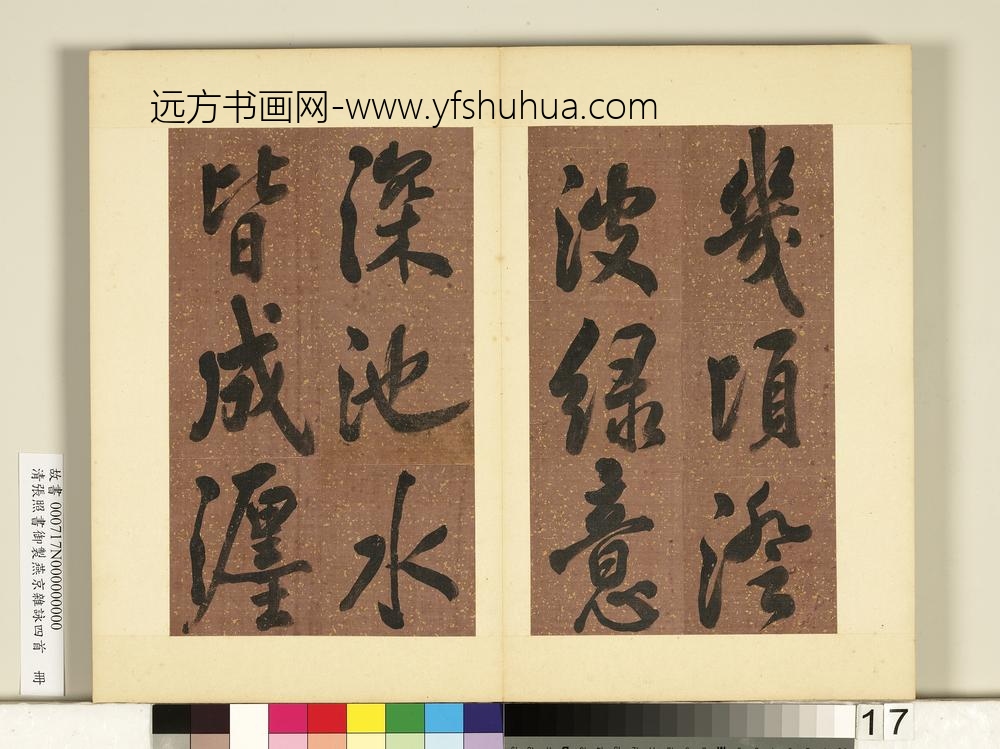 远方书画网-www.yfshuhua.com
幾頃澄
波綠意
深池水
皆成瀍
故書 000717N000000000
清張照書御製燕京雜詠四首 冊
17